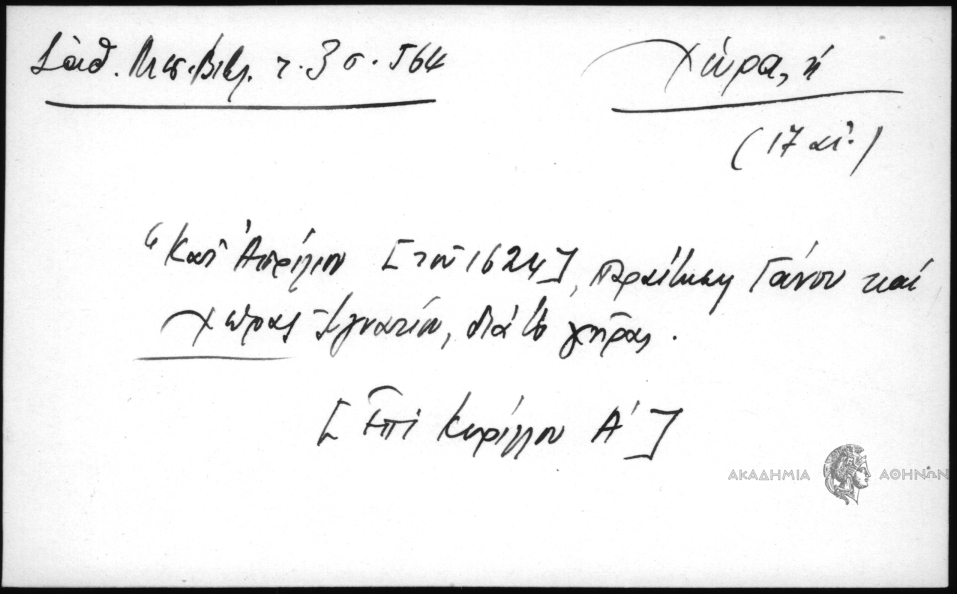 Σάθ. Μεσ. Βιβλ. τ. 3 σ. 564
Χώρα, ἡ
(17 αἰ.)
"Κατ' Ἀπρίλιον [τοῦ 1624], παραίτησις Γάνου καὶ
Χώρας Ἰγνατίου, διὰ τὸ γῆρας.
[Ἐπὶ Κυρίλλου Α']
ΑΚΑΔΗΜΙΑ ΑΘΗΝΩΝ